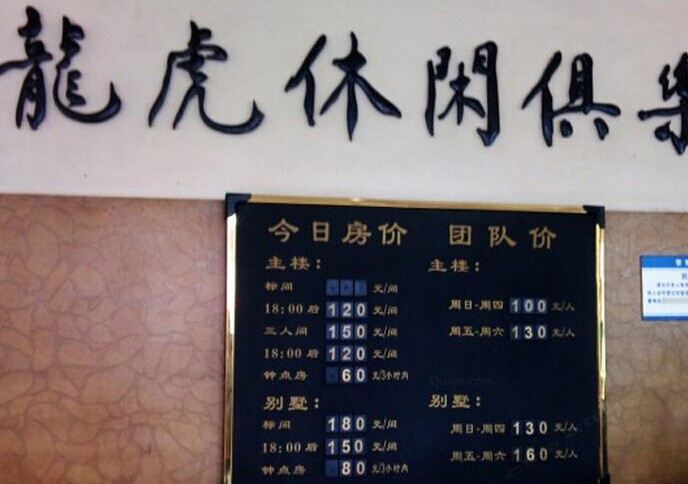 龍虎休閑俱樂
今日房价
主楼：
标间 元/间
18:00后 120 元/间
三人间 150 元/间
18:00后 120 元/间
钟点房 60 元/3小时内
别墅：
标间 180 元/间
18:00后 150 元/间
钟点房 80 元/3小时内
团队价
主楼：
周日-周四 100 元/人
周五-周六 130 元/人
别墅：
周日-周四 130 元/人
周五-周六 160 元/人